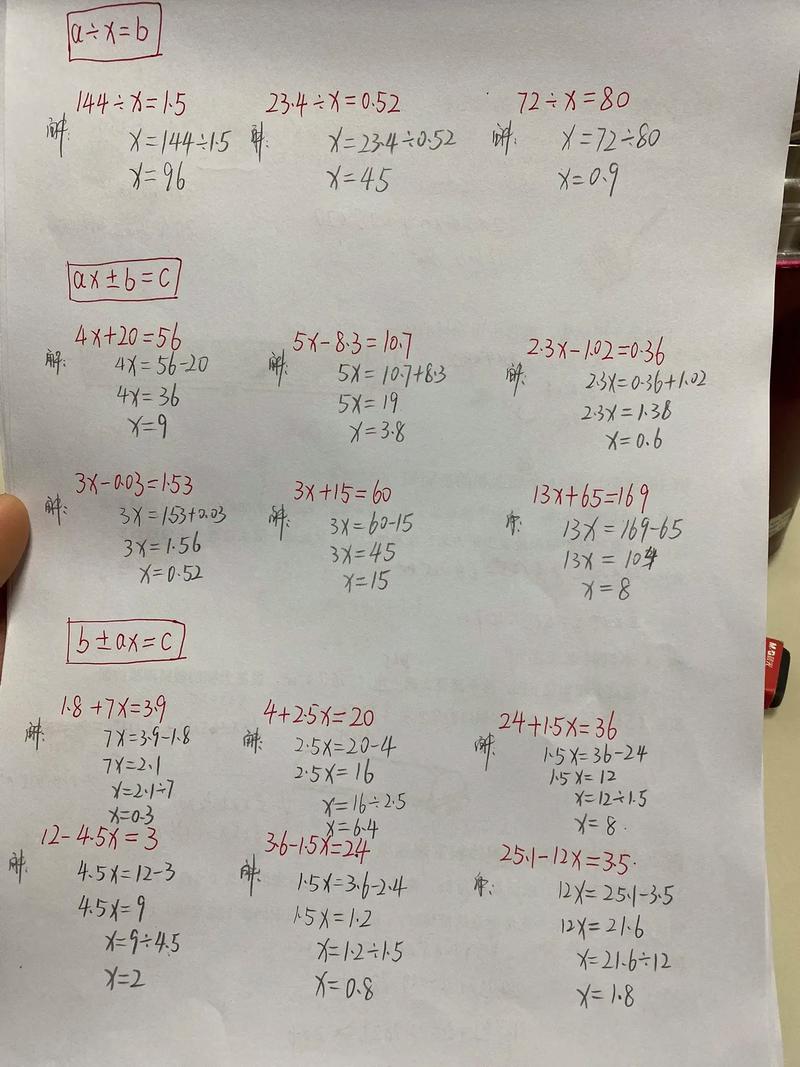 a÷x=b
144÷x=1.5
解: x=144÷1.5
x=96
23.4÷x=0.52
解: x=23.4÷0.52
x=45
72÷x=80
解: x=72÷80
x=0.9
ax±b=c
4x+20=56
解: 4x=56-20
4x=36
x=9
5x-8.3=10.7
解: 5x=10.7+8.3
5x=19
x=3.8
2.3x-1.02=0.36
解: 2.3x=0.36+1.02
2.3x=1.38
x=0.6
3x-0.03=1.53
解: 3x=1.53+0.03
3x=1.56
x=0.52
3x+15=60
解: 3x=60-15
3x=45
x=15
13x+65=169
解: 13x=169-65
13x=104
x=8
b±ax=c
1.8+7x=3.9
解: 7x=3.9-1.8
7x=2.1
x=2.1÷7
x=0.3
4+2.5x=20
解: 2.5x=20-4
2.5x=16
x=16÷2.5
x=6.4
24+1.5x=36
解: 1.5x=36-24
1.5x=12
x=12÷1.5
x=8.
12-4.5x=3
解: 4.5x=12-3
4.5x=9
x=9÷4.5
x=2
3.6-1.5x=24
解: 1.5x=3.6-2.4
1.5x=1.2
x=1.2÷1.5
x=0.8
25.1-12x=3.5.
解: 12x=25.1-3.5
12x=21.6
x=21.6÷12
x=1.8
M&G